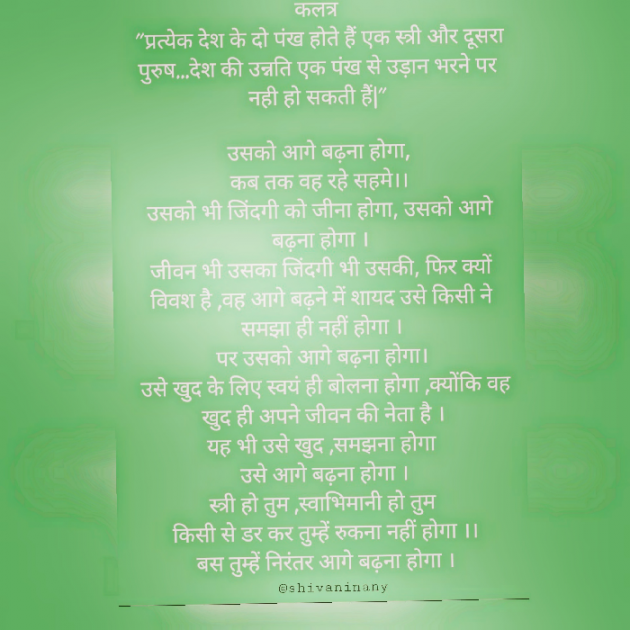 कलत्र
"प्रत्येक देश के दो पंख होते हैं एक स्त्री और दूसरा
पुरुष...देश की उन्नति एक पंख से उड़ान भरने पर
नही हो सकती हैं|"
उसको आगे बढ़ना होगा,
कब तक वह रहे सहमे।।
उसको भी जिंदगी को जीना होगा, उसको आगे
बढ़ना होगा ।
जीवन भी उसका जिंदगी भी उसकी, फिर क्यों
विवश है ,वह आगे बढ़ने में शायद उसे किसी ने
समझा ही नहीं होगा ।
पर उसको आगे बढ़ना होगा।
उसे खुद के लिए स्वयं ही बोलना होगा ,क्योंकि वह
खुद ही अपने जीवन की नेता है ।
यह भी उसे खुद ,समझना होगा
उसे आगे बढ़ना होगा ।
स्त्री हो तुम ,स्वाभिमानी हो तुम
किसी से डर कर तुम्हें रुकना नहीं होगा ।।
बस तुम्हें निरंतर आगे बढ़ना होगा ।
@shivaninany